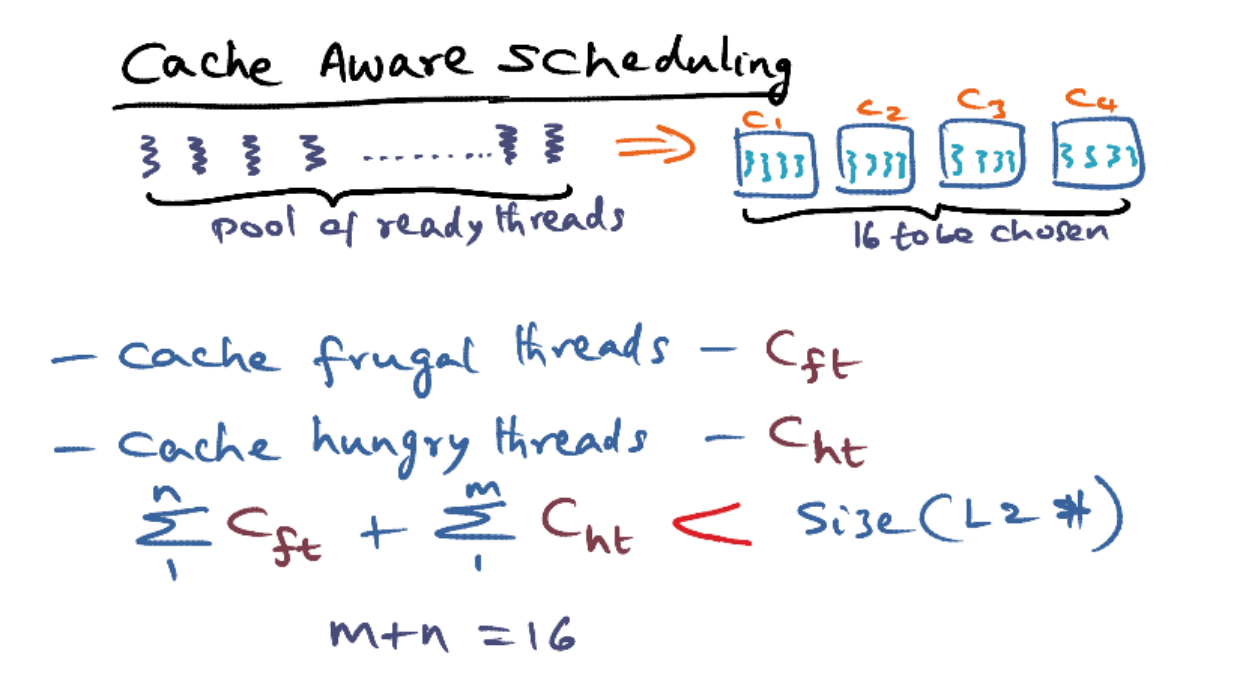 Cache Aware Scheduling
C1 C2 C3 C4
pool of ready threads
16 to be chosen
- Cache frugal threads - Cft
- Cache hungry threads - Cht
n∑1 Cft + m∑1 Cht < Size(L2 $)
m+n = 16